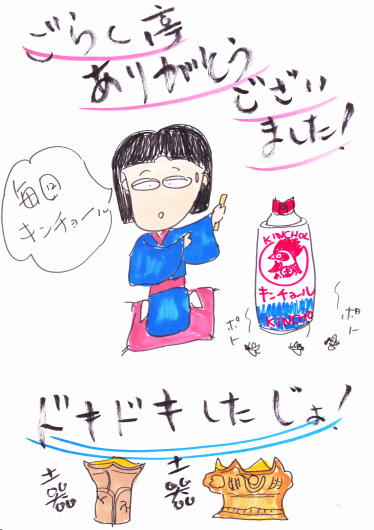 ごらく亭
ありがとう
ござい
ました!
毎回
キンチョール
KINCHOL
キンチョール
KINCHO
ポト
ポト
ドキドキしたじょ!
土器
土器